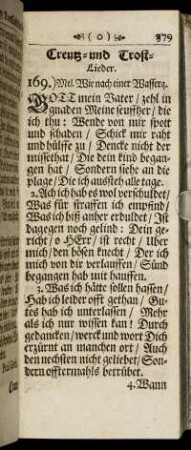 ( o ) 379
Creutz- und Trost-
Lieder.
169. Mel. Wie nach einer Wasserq.
GOTT mein Vater / zehl in
gnaden Meine seuffzer / die
ich thu: Wende von mir spott
und schaden / Schick mir raht
und hülffe zu / Dencke nicht der
missethat / Die dein kind began-
gen hat / Sondern siehe an die
plage / Die ich austeh alle tage.
2. Ach ich hab es wol verschuldet /
Was für straffen ich empfind /
Was ich biß anher erduldet / Ist
dagegen noch gelind: Dein ge-
richt / o HErr / ist recht / Uber
mich / den bösen knecht / Der ich
mich von dir verlauffen / Sünd
begangen hab mit hauffen.
3. Was ich hätte sollen hassen /
Hab ich leider offt gethan / Gu-
tes hab ich unterlassen / Mehr
als ich nur wissen kan! Durch
gedancken / werck und wort Dich
erzürnt an manchen ort / Auch
den nechsten nicht geliebet / Son-
dern offtermahls betrübet.
4. Wann